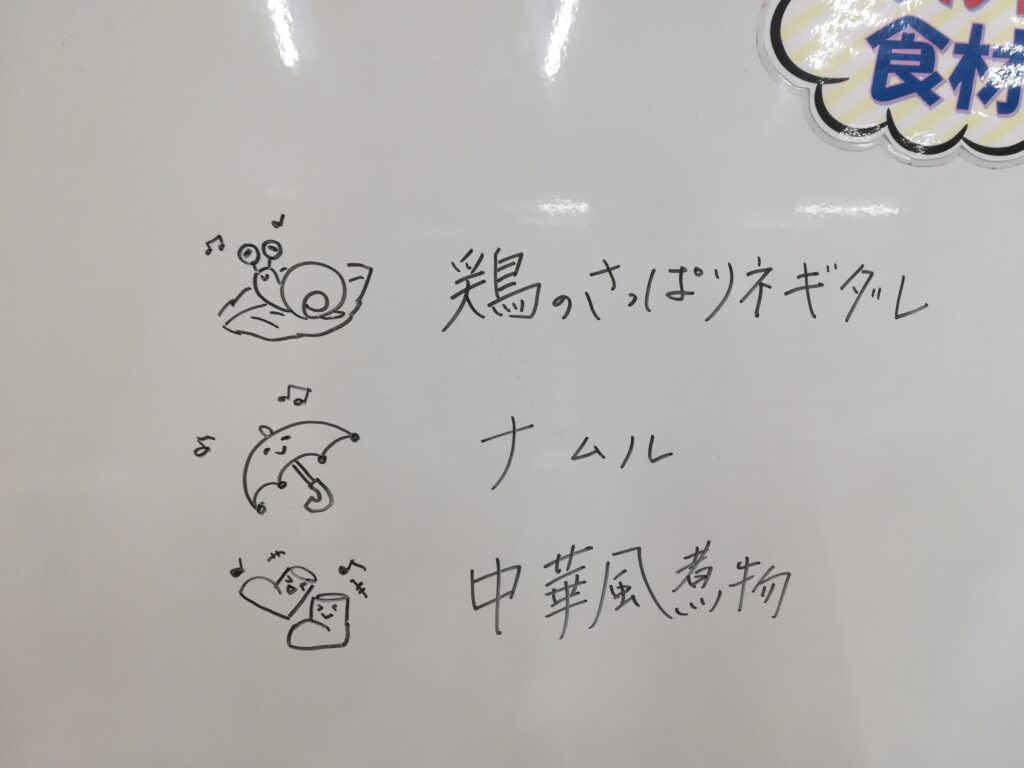 食材
鶏のさっぱりネギダレ
ナムル
中華風煮物